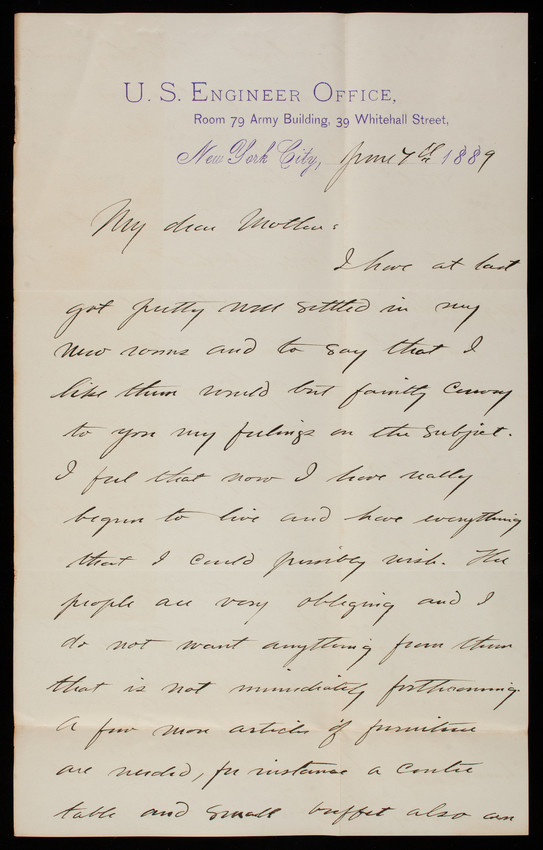 U. S. ENGINEER OFFICE,
Room 79 Army Building, 39 Whitehall Street,
New York City, June 7th 1889
My dear Mother:
I have at last
got pretty well settled in my
new rooms and to say that I
like them would but faintly convey
to you my feelings on the subject.
I feel that now I have really
begun to live and have everything
that I could possibly wish. The
people are very obliging and I
do not want anything from them
that is not immediately forthcoming.
A few more articles of furniture
are needed, for instance a centre
table and small buffet also an